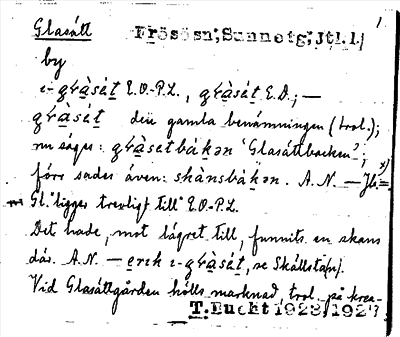 Glasått Frösösn; Sunnetg; Jtl. 1.
by
ɩ-gɤ̀àsát E.O.-P.L., gɤàsát E.D.; —
gɤàsát den gamla benämningen (trol.);
nu säges: gɤàsatbákən 'Glasåttbacken';
förr sades även: skànsbákən. A.N. — Jfr.
Gl. "ligger trevligt till" E.O.-P.L.
Det hade, mot lägret till, funnits en skans
där. A.N. — erik ɩ-gɤàsát, se Skålsta(n).
Vid Glasåttgården hölls marknad, trol. på krea-
T. Bucht 1928, 192